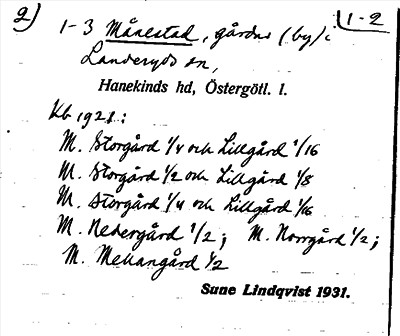 2) 1-3 Månestad, gårdar (by) i 1-2
Landeryds sn,
Hanekinds hd, Östergötl. l.
Kb 1921:
M. Storgård 1/4 och Lillgård 1/16
M. Storgård 1/2 och Lillgård 1/8
M. Storgård 1/4 och Lillgård 1/16
M. Nedergård 1/2; M. Norrgård 1/2;
M. Mellangård 1/2
Sune Lindqvist 1931.